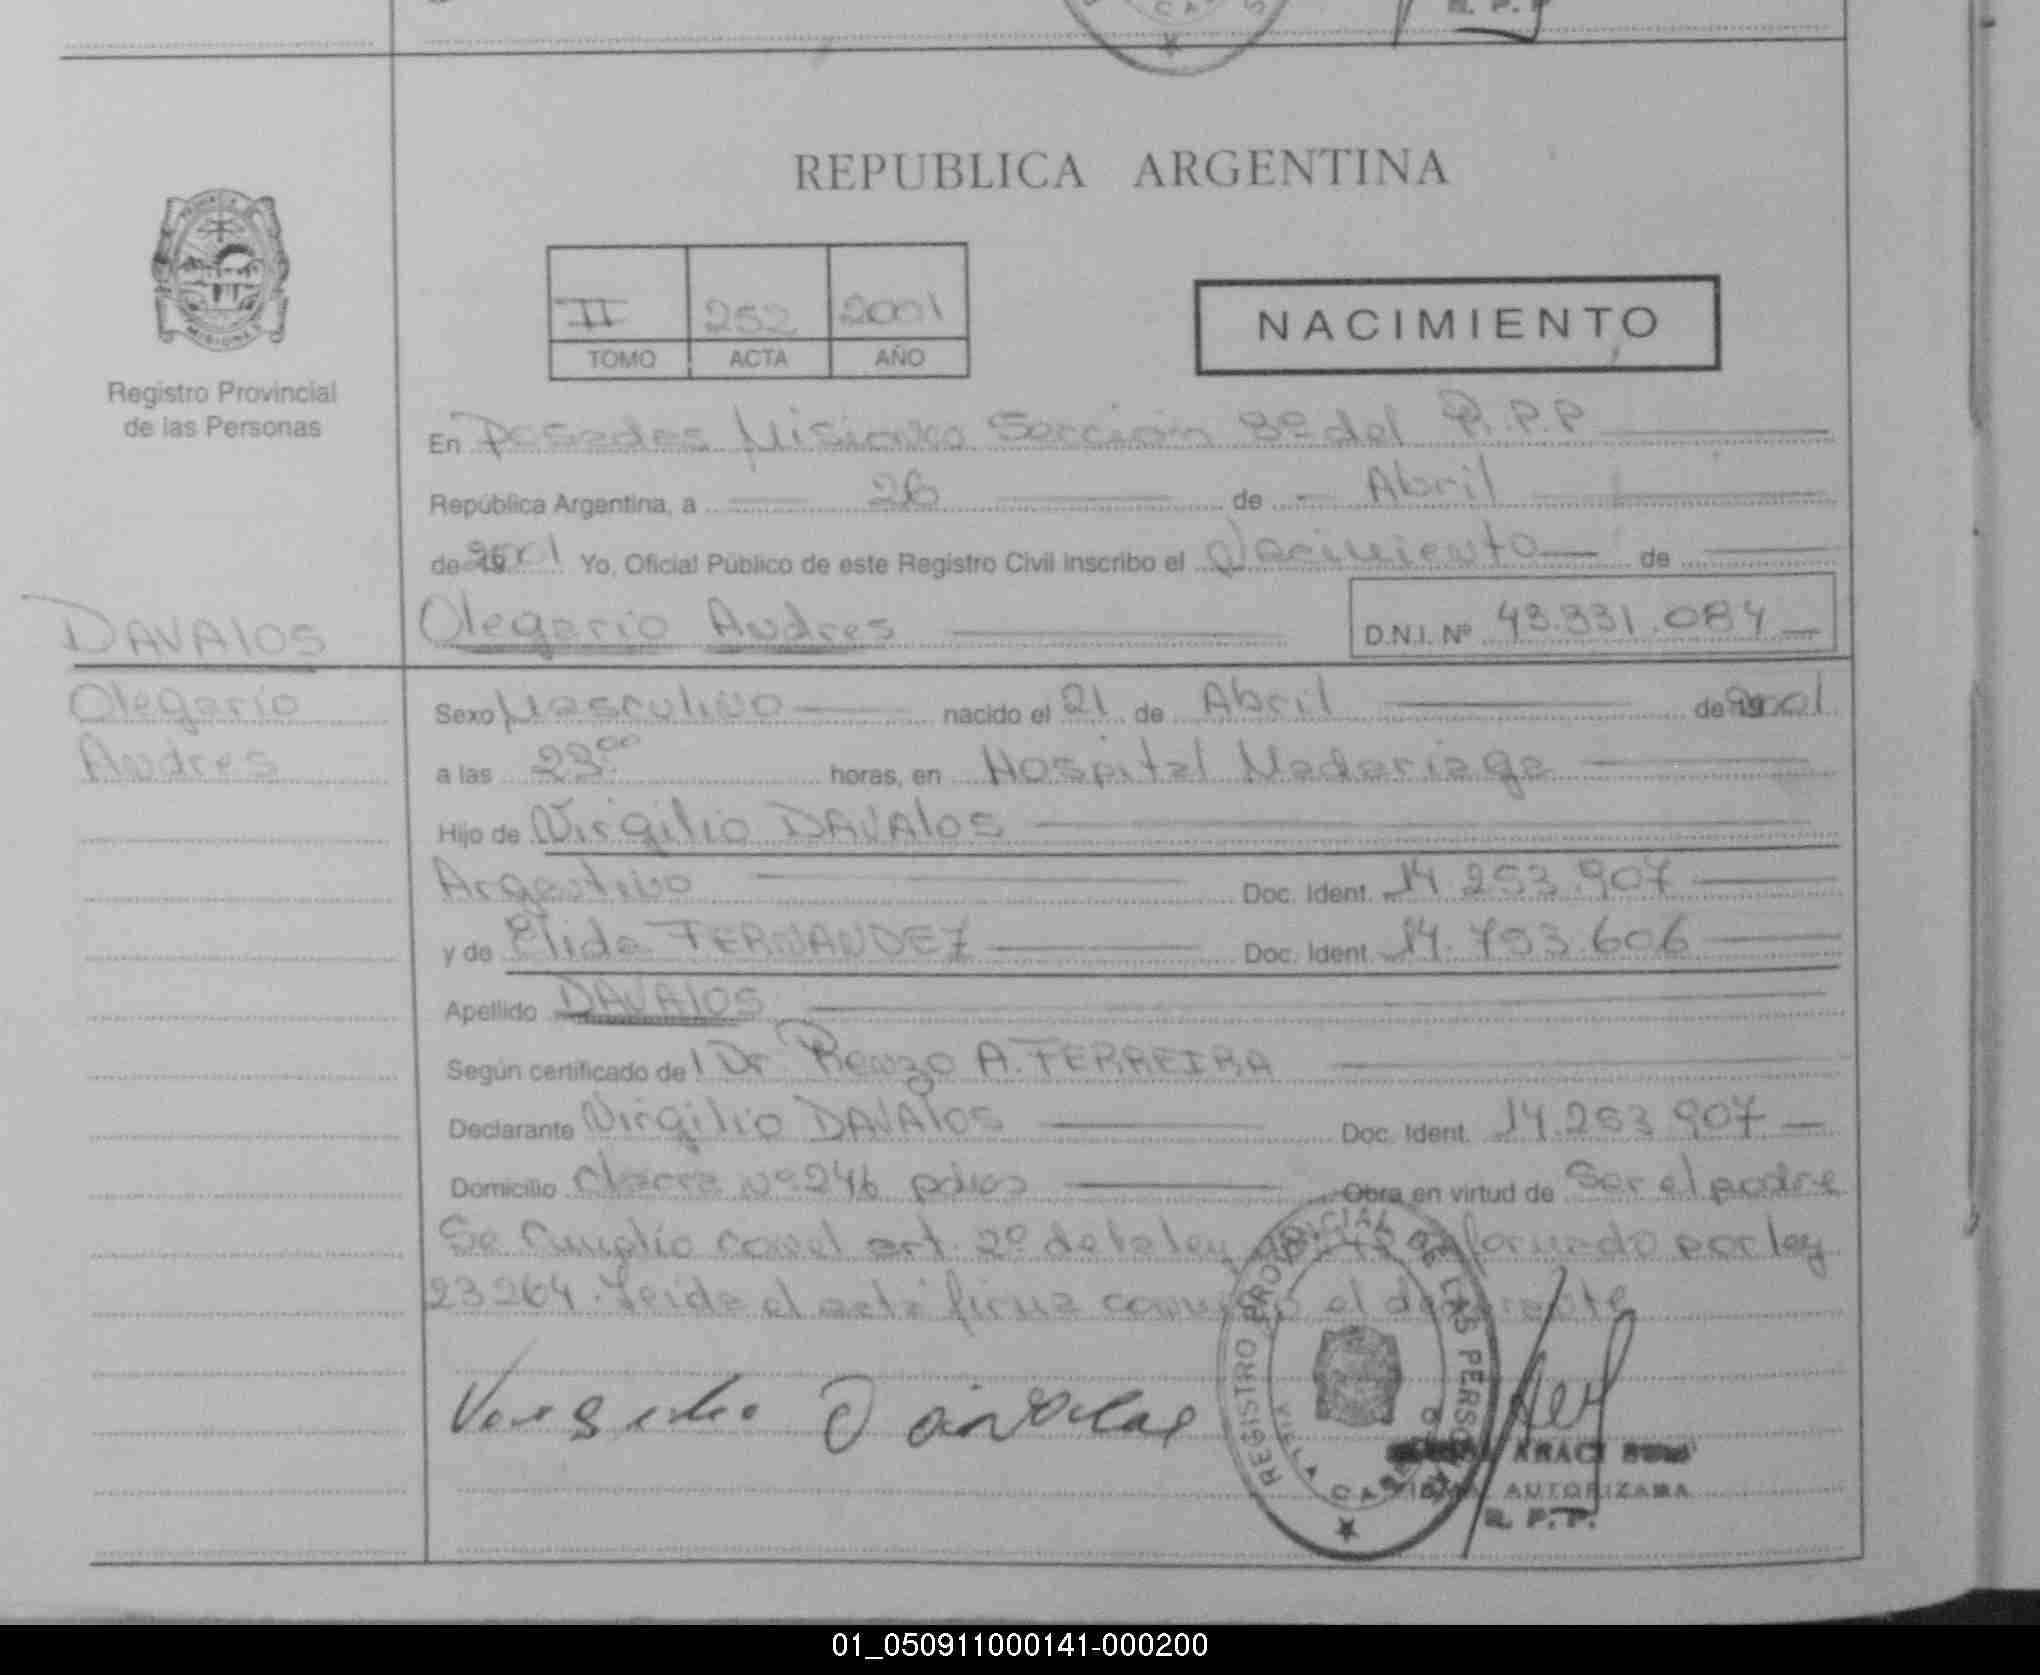 REPUBLICA ARGENTINA
MISIONES
Registro Provincial
de las Personas
II 252 2001
TOMO ACTA AÑO
NACIMIENTO
En Posadas Misiones Sección 8º del R.P.P
República Argentina, a 26 de Abril
de 2001 Yo, Oficial Público de este Registro Civil inscribo el Nacimiento de
DAVALOS
Olegario Andres D.N.I. Nº 43.331.084
Olegario
Andres
Sexo Masculino nacido el 21 de Abril de 2001
a las 23.00 horas, en Hospital Madariaga
Hijo de Virgilio DAVALOS
Argentino Doc. Ident. 14.253.907
y de Elida FERNANDEZ Doc. Ident. 14.793.606
Apellido DAVALOS
Según certificado del Dr Renzo A. FERREIRA
Declarante Virgilio DAVALOS Doc. Ident. 14.253.907
Domicilio Chacra Nº 246 pdas Obra en virtud de Ser el padre
Se cumplio con el art. 2º de la ley por ley
23264. Leida el acta firma conmigo el declarante
Virgilio Davalos
REGISTRO PROVINCIAL DE LAS PERSONAS
ARACI
AUTORIZADA
R. P. P.
01_050911000141-000200